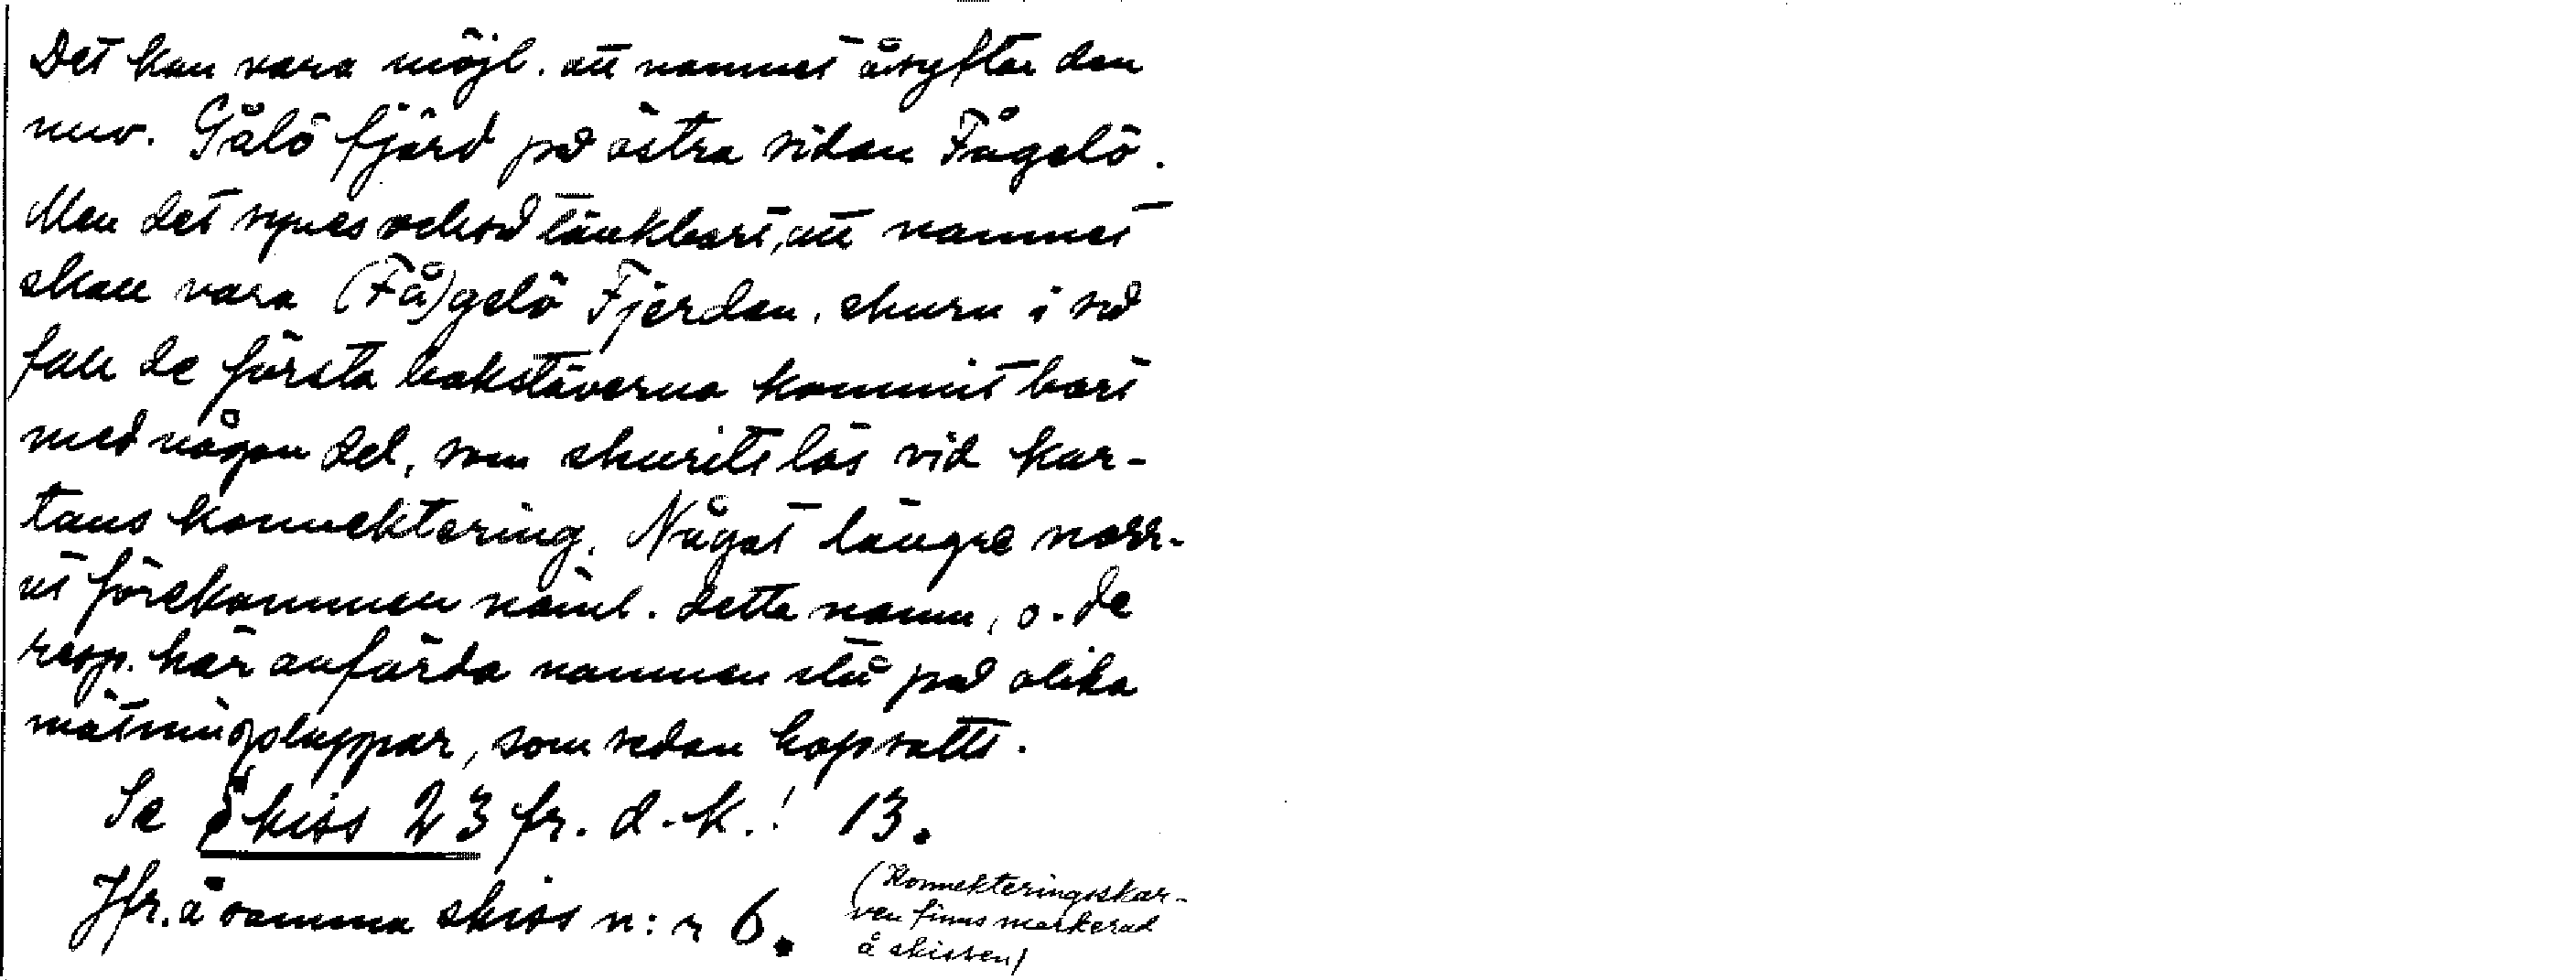 Det kan vara möjl. att namnet åsyftar den
nuv. Gålö fjärd på östra sidan Fågelö.
Men det synes också tänkbart, att namnet
skall vara (Få)gelö Fjerden, ehuru i så
fall de första bokstäverna kommit bort
med någon del, som skurits lös vid kar-
tans konnektering. Något längre norr-
ut förekommer näml. detta namn, o. de
resp. här anförda namnen stå på olika
mätningslappar, som sedan hopsatts.
Se Skiss 23 fr. d. k.! 13.
Jfr. å samma skiss n:r 6.
(Konnekteringsskar-
ven finns markerad
å skissen)